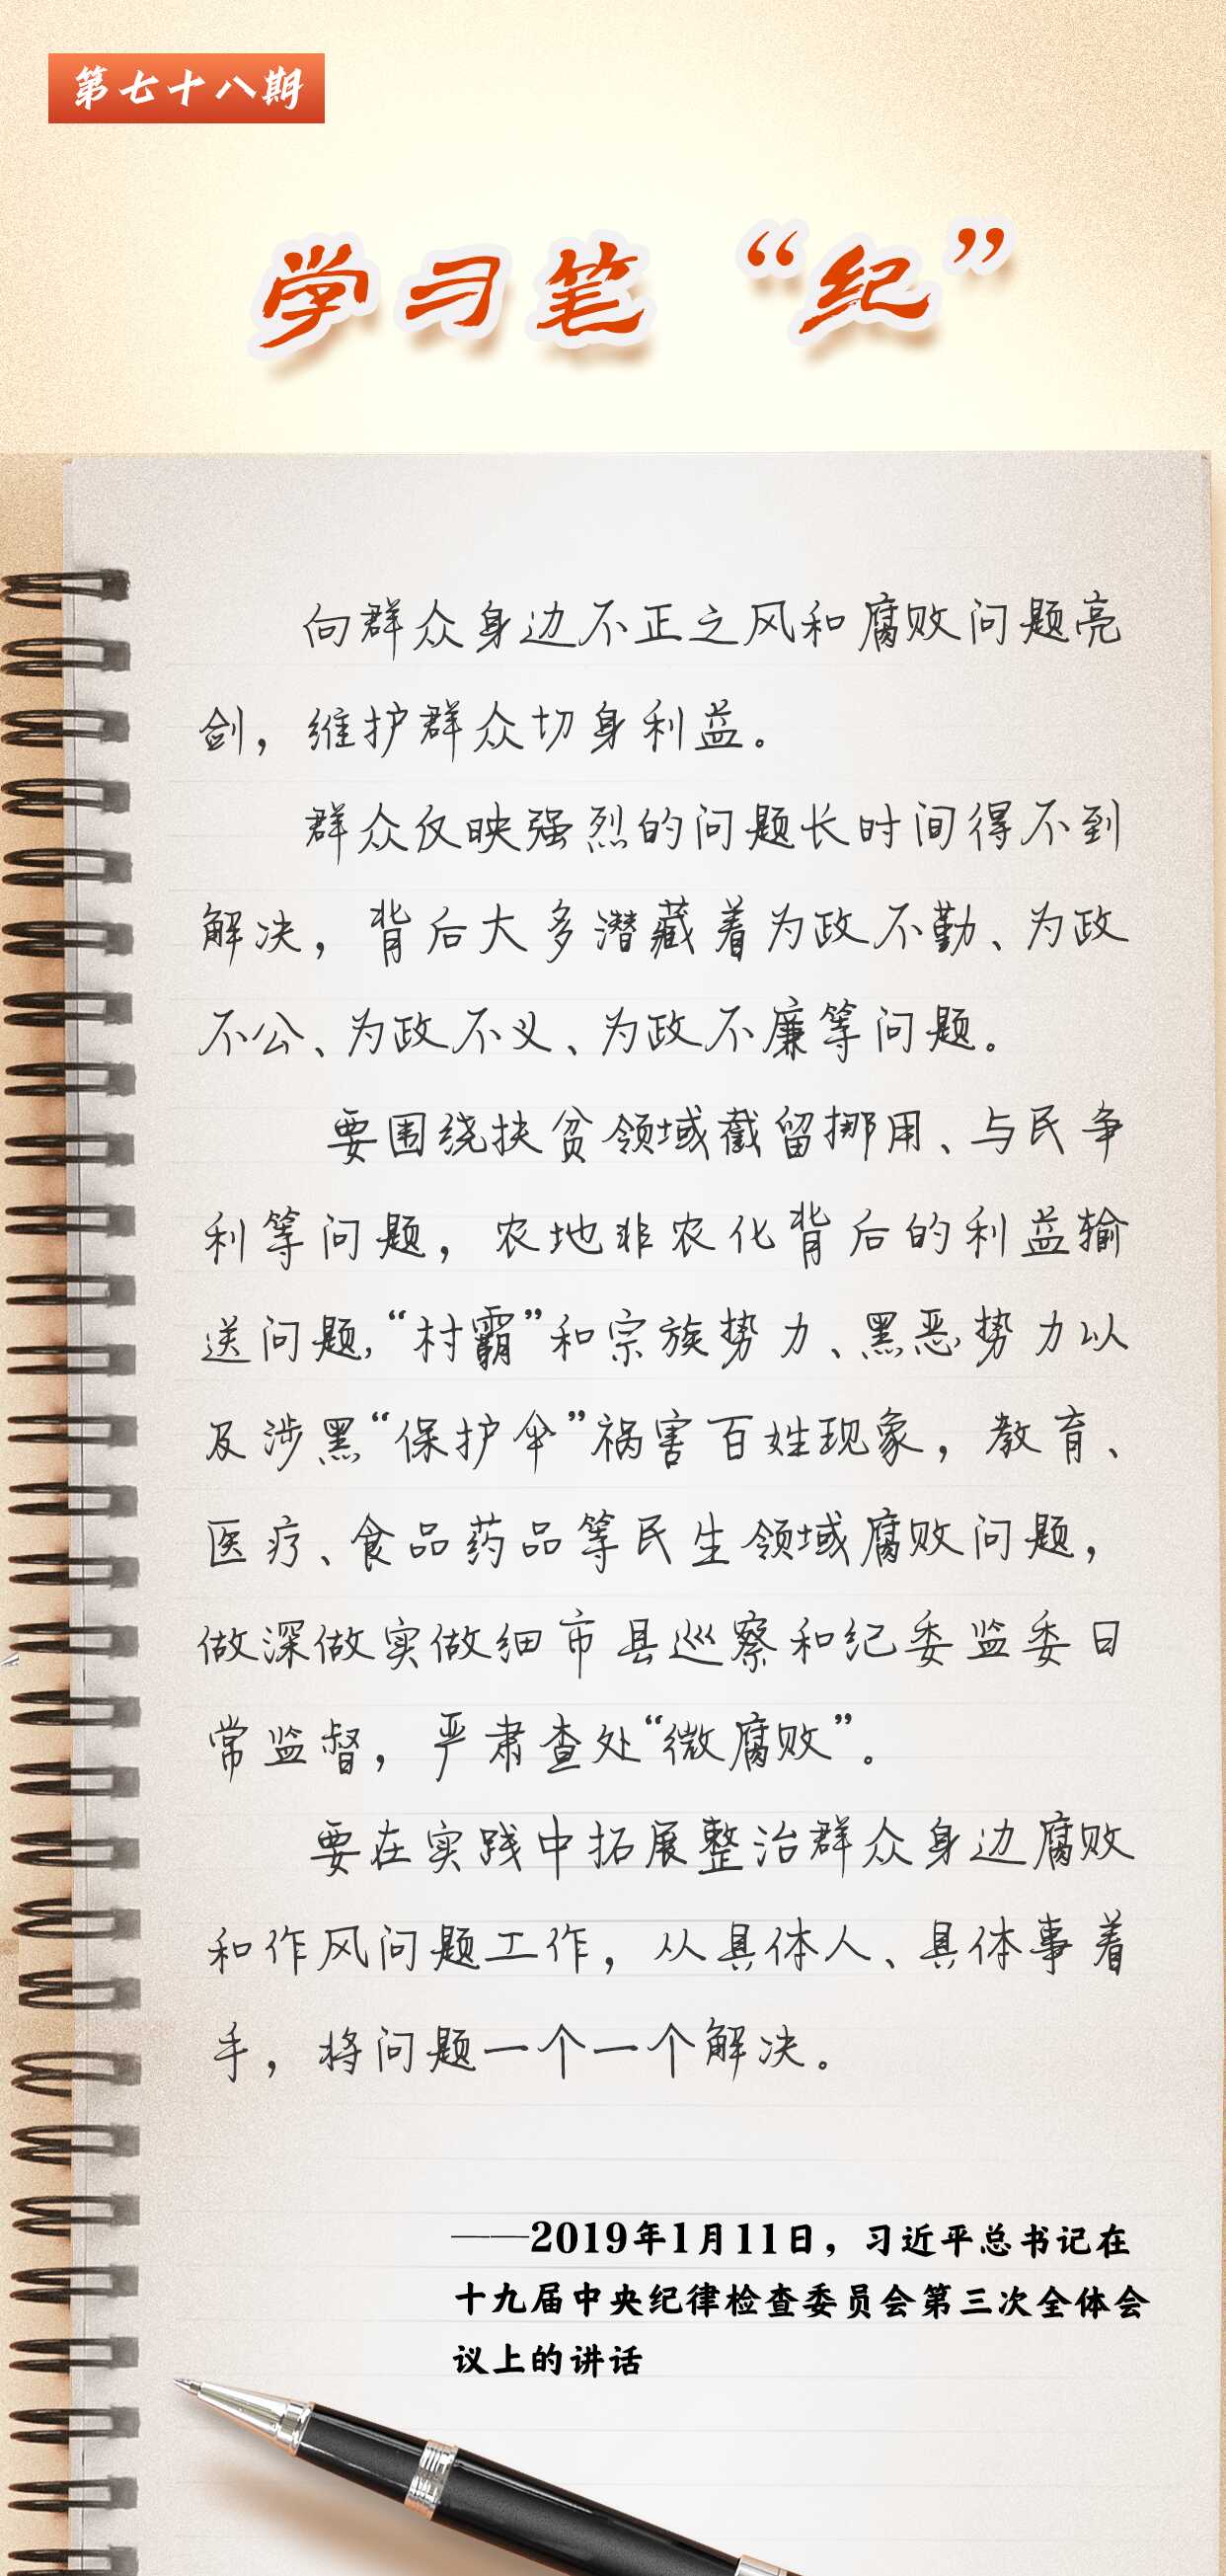 第七十八期
学习笔“纪”
向群众身边不正之风和腐败问题亮
剑，维护群众切身利益。
群众反映强烈的问题长时间得不到
解决，背后大多潜藏着为政不勤、为政
不公、为政不义、为政不廉等问题。
要围绕扶贫领域截留挪用、与民争
利等问题，农地非农化背后的利益输
送问题，“村霸”和宗族势力、黑恶势力以
及涉黑“保护伞”祸害百姓现象，教育、
医疗、食品药品等民生领域腐败问题，
做深做实做细市县巡察和纪委监委日
常监督，严肃查处“微腐败”。
要在实践中拓展整治群众身边腐败
和作风问题工作，从具体人、具体事着
手，将问题一个一个解决。
——2019年1月11日，习近平总书记在
十九届中央纪律检查委员会第三次全体会
议上的讲话